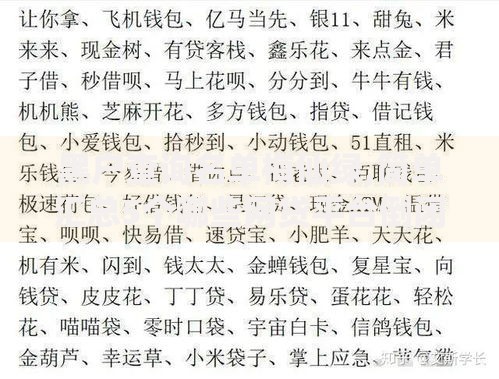 让你拿、飞机钱包、亿马当先、银11、甜兔、米
来来、现金树、有贷客栈、鑫乐花、来点金、君
子借、秒借呗、马上花呗、分分到、牛牛有钱、
机机熊、芝麻开花、多方钱包、指贷、借记钱
包、小爱钱包、拾秒到、小动钱包、51直租、米
乐钱
极速荷包、好借钱包、
宝、呗呗、快易借、速贷宝、小肥羊、天天花、
机有米、闪到、钱太太、金蝉钱包、复星宝、向
钱贷、皮皮花、丁丁贷、易乐贷、蛋花花、轻松
花、喵喵袋、零时口袋、宇宙白卡、信鸽钱包、
金葫芦、幸运草、小米袋子、掌上应急、
知乎
学长